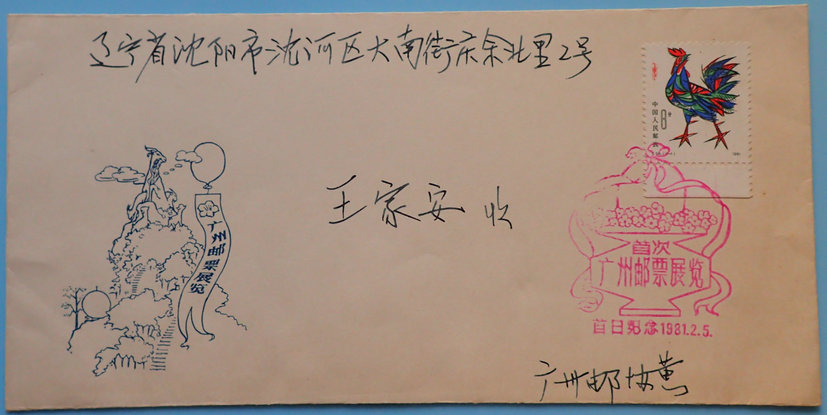 辽宁省沈阳市沈河区大南街庆余北里2号
中国人民邮政
8分
1981
王家安 收
广州邮票展览
首次
广州邮票展览
首日纪念1981.2.5.
广州邮协